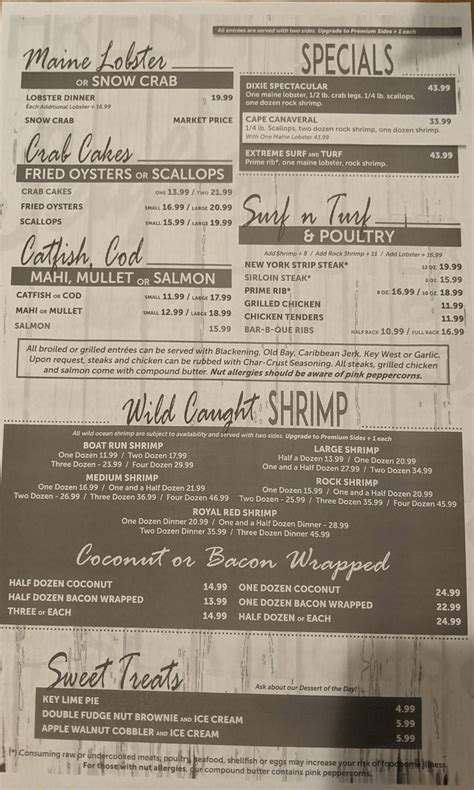 All entrées are served with two sides. Upgrade to Premium Sides + 1 each
Maine Lobster
OR SNOW CRAB
LOBSTER DINNER 19.99
Each Additional Lobster + 16.99
SNOW CRAB MARKET PRICE
Crab Cakes
FRIED OYSTERS OR SCALLOPS
CRAB CAKES ONE 13.99 / TWO 21.99
FRIED OYSTERS SMALL 16.99 / LARGE 20.99
SCALLOPS SMALL 15.99 / LARGE 19.99
Catfish, Cod
MAHI, MULLET OR SALMON
CATFISH OR COD SMALL 11.99 / LARGE 17.99
MAHI OR MULLET SMALL 12.99 / LARGE 18.99
SALMON 15.99
SPECIALS
DIXIE SPECTACULAR 43.99
One maine lobster, 1/2 lb. crab legs, 1/4 lb. scallops,
one dozen rock shrimp.
CAPE CANAVERAL 33.99
1/4 lb. Scallops, two dozen rock shrimp, one dozen shrimp.
With One Maine Lobster 43.99
EXTREME SURF AND TURF 43.99
Prime rib*, one maine lobster, rock shrimp.
Surf n Turf
& POULTRY
Add Shrimp + 8 / Add Rock Shrimp + 11 / Add Lobster + 16.99
NEW YORK STRIP STEAK* 12 OZ. 19.99
SIRLOIN STEAK* 8 OZ. 15.99
PRIME RIB* 8 OZ. 16.99 / 10 OZ. 18.99
GRILLED CHICKEN 10.99
CHICKEN TENDERS 11.99
BAR-B-QUE RIBS HALF RACK 10.99 / FULL RACK 16.99
All broiled or grilled entrées can be served with Blackening, Old Bay, Caribbean Jerk, Key West or Garlic.
Upon request, steaks and chicken can be rubbed with Char-Crust Seasoning. All steaks, grilled chicken
and salmon come with compound butter. Nut allergies should be aware of pink peppercorns.
Wild Caught SHRIMP
All wild ocean shrimp are subject to availability and served with two sides. Upgrade to Premium Sides + 1 each
BOAT RUN SHRIMP
One Dozen 11.99 / Two Dozen 17.99
Three Dozen - 23.99 / Four Dozen 29.99
LARGE SHRIMP
Half a Dozen 13.99 / One Dozen 20.99
One and a Half Dozen 27.99 / Two Dozen 34.99
MEDIUM SHRIMP
One Dozen 16.99 / One and a Half 21.99
Two Dozen - 26.99 / Three Dozen 36.99 / Four Dozen 46.99
ROCK SHRIMP
One Dozen 15.99 / One and a Half Dozen 20.99
Two Dozen - 25.99 / Three Dozen 35.99 / Four Dozen 45.99
ROYAL RED SHRIMP
One Dozen Dinner 20.99 / One and a Half Dozen Dinner - 28.99
Two Dozen Dinner 35.99 / Three Dozen Dinner 45.99
Coconut or Bacon Wrapped
HALF DOZEN COCONUT 14.99
HALF DOZEN BACON WRAPPED 13.99
THREE OF EACH 14.99
ONE DOZEN COCONUT 24.99
ONE DOZEN BACON WRAPPED 22.99
HALF DOZEN OF EACH 24.99
Sweet Treats
Ask about our Dessert of the Day!
KEY LIME PIE 4.99
DOUBLE FUDGE NUT BROWNIE AND ICE CREAM 5.99
APPLE WALNUT COBBLER AND ICE CREAM 5.99
(*) Consuming raw or undercooked meats, poultry, seafood, shellfish or eggs may increase your risk of foodborne illness.
For those with nut allergies, our compound butter contains pink peppercorns.